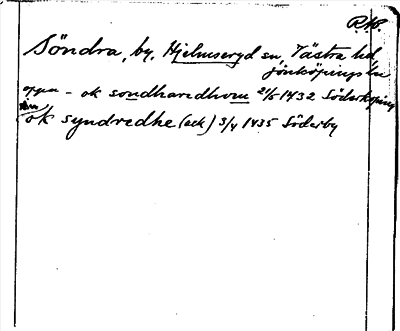 R.A.P.
Söndra, by. Hjelmseryd sn Västra hd
Jönköpings län
oppa - ok sondharedhom 21/5 1432 Söderköping
ok syndredhe (ack) 3/4 1435 Söderby